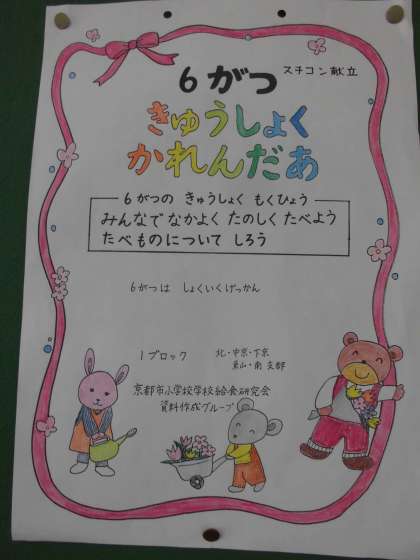 スチコン献立
6がつ
きゅうしょく
かれんだあ
6がつの きゅうしょく もくひょう
みんなで なかよく たのしく たべよう
たべものについて しろう
6がつは しょくいくげっかん
1ブロック
北・中京・下京
東山・南 支部
京都市小学校学校給食研究会
資料作成グループ